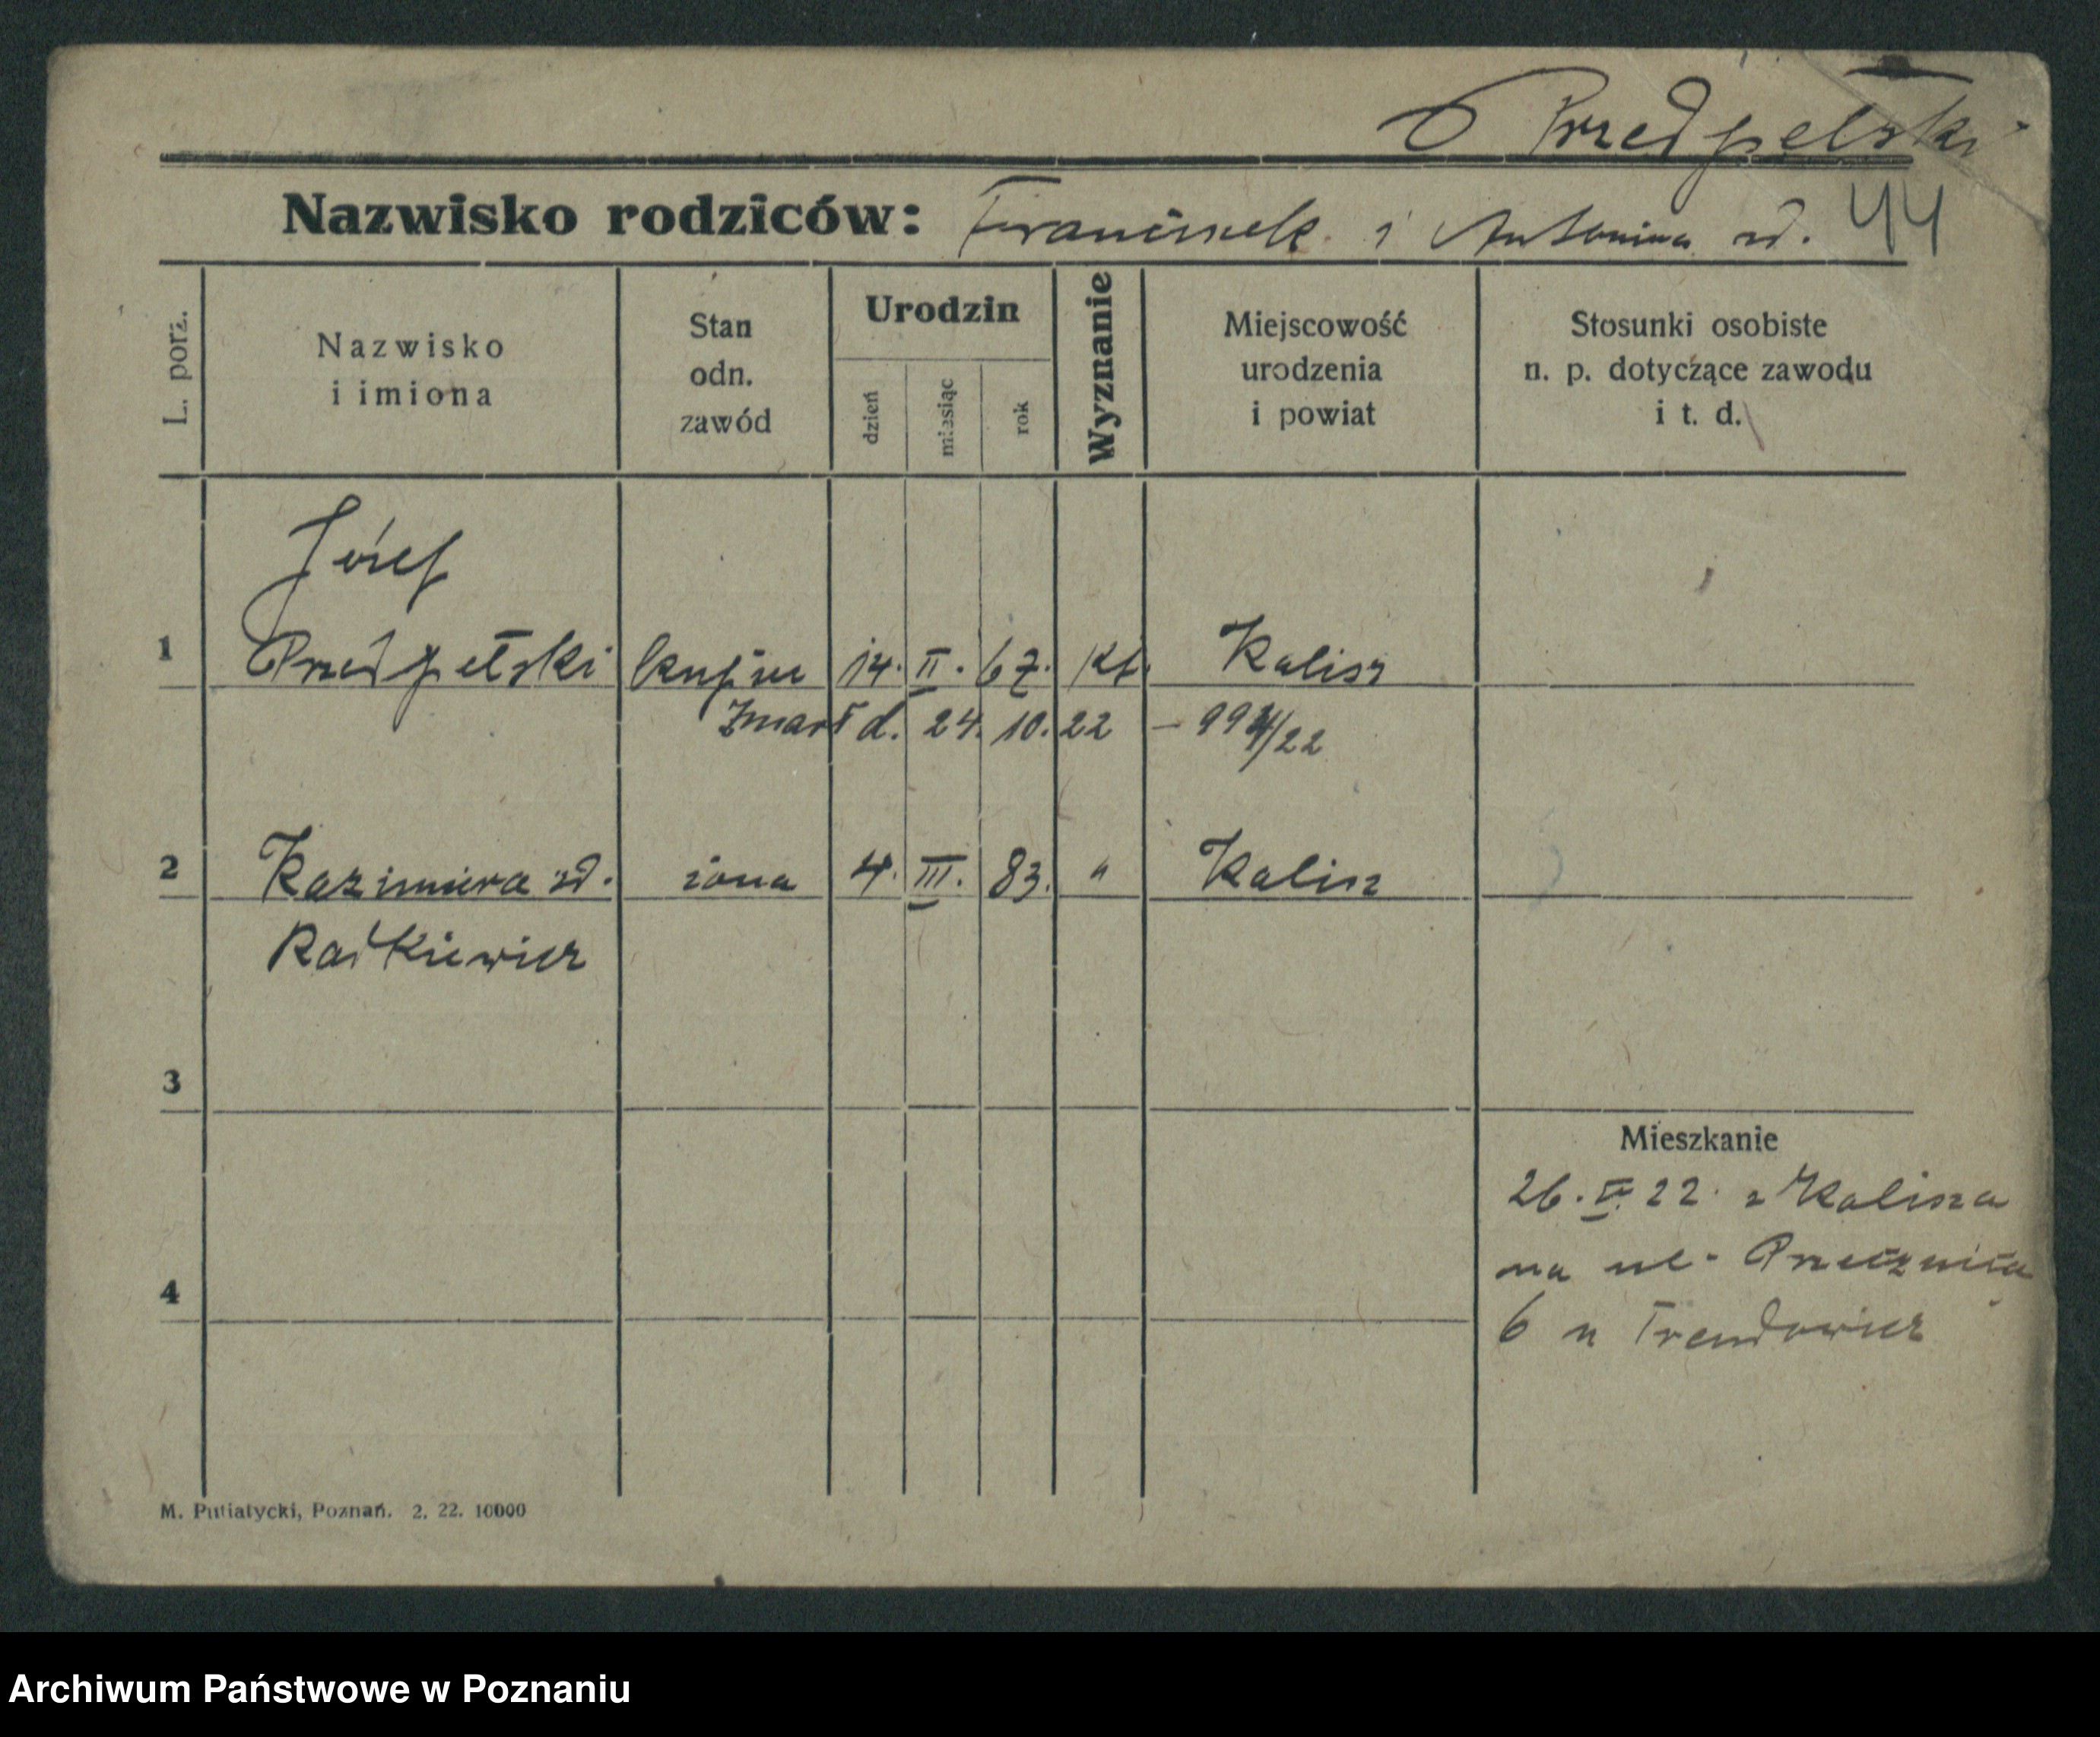 Przedpełski
Nazwisko rodziców: Franciszek i Antonina zd. 44
L. porz.
Nazwisko
i imiona
Stan
odn.
zawód
Urodzin
dzień
miesiąc
rok
Wyznanie
Miejscowość
urodzenia
i powiat
Stosunki osobiste
n. p. dotyczące zawodu
i t. d.
Józef
1 Przedpełski kupiec 14. II. 67. kt. Kalisz
zmarł d. 24. 10. 22 – 994/22
2 Kazimiera zd. żona 4. III. 83. " Kalisz
Ratkiewicz
3
Mieszkanie
26. 22. z Kalisza
na ul. Przecznica
4
6 u Trendowicz
M. Putiatycki, Poznań. 2. 22. 10000
Archiwum Państwowe w Poznaniu